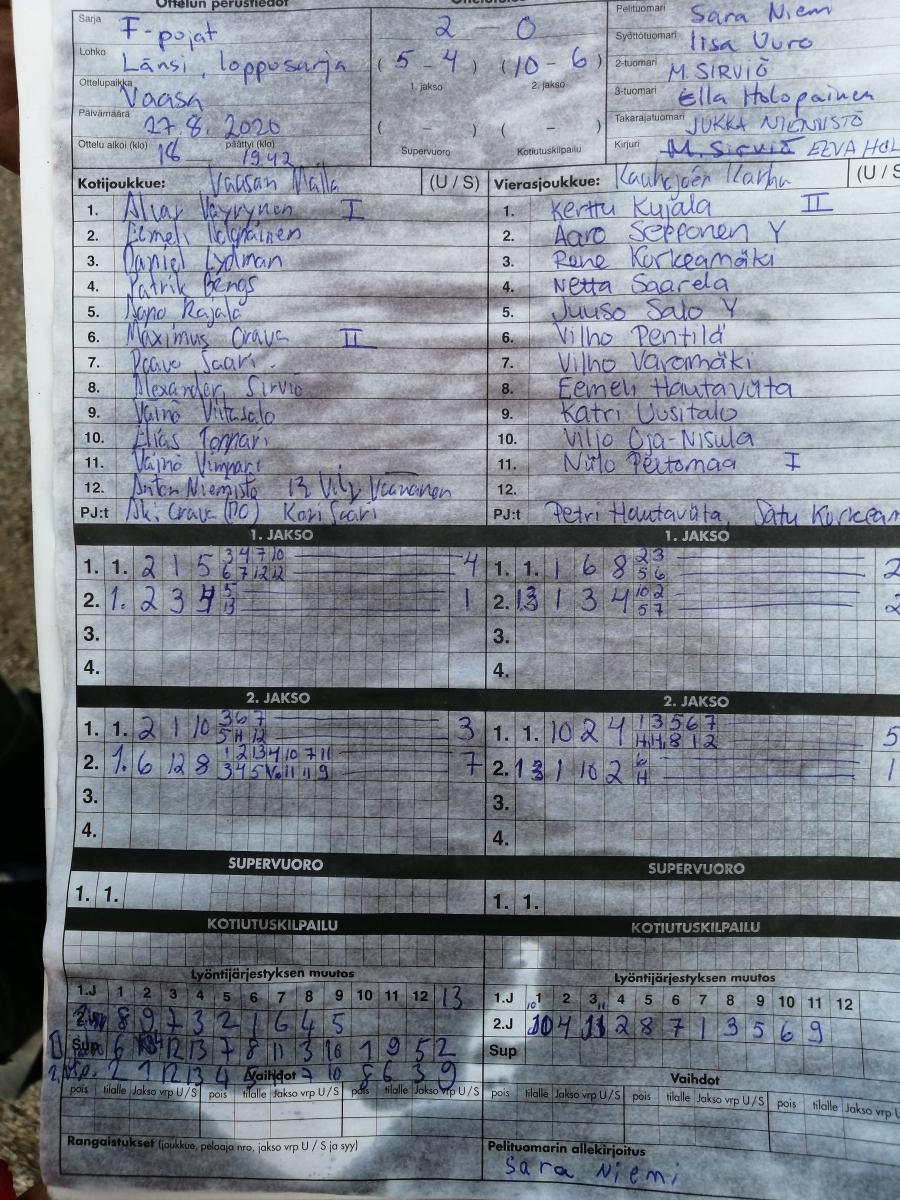 Ottelun perustiedot
Sarja F-pojat
Lohko Länsi, loppusarja
Ottelupaikka Vaasa
Päivämäärä 27.8.2020
Ottelu alkoi (klo) 18 päättyi (klo) 1942
2 0
( 5 - 4 ) ( 10 - 6 )
1. jakso 2. jakso
( - ) ( - )
Supervuoro Kotiutuskilpailu
Pelituomari Sara Niemi
Syöttötuomari Iisa Vuro
2-tuomari M. SIRVIÖ
3-tuomari Ella Holopainen
Takarajatuomari JUKKA NIEMISTÖ
Kirjuri M. Sirviö
Kotijoukkue: Vaasan Maila (U / S)
1. Alvar Väyrynen I
2. Eemeli
3. Daniel Lydman
4. Patrik Bengs
5. Rajala
6. Maximus Crava II
7. Paavo Saari
8. Alexander Sirviö
9. Väinö Viitasalo
10. Elias
11. Väinö
12. Anton Niemistö 13 Väänänen
PJ:t Crava (PC) Kari Saari
Vierasjoukkue: Kauhajoen Karhu (U / S
1. Kerttu Kujala II
2. Aaro Sepponen Y
3. Rene Korkeamäki
4. Netta Saarela
5. Juuso Salo Y
6. Vilho Pentilä
7. Vilho Varamäki
8. Eemeli Hautaviita
9. Katri Uusitalo
10. Viljo Oja-Nisula
11. Niilo Peltomaa I
12.
PJ:t Petri Hautaviita, Satu Korkeam
1. JAKSO
1. 1. 2 1 5 3 4 7 10 4
6 7 12 12
2. 1. 2 3 4 5 1
13
3.
4.
1. JAKSO
1. 1. 1 6 8 2 3 2
5 6
2. 13 1 3 4 10 2 2
5 7
3.
4.
2. JAKSO
1. 1. 2 1 10 3 6 7 3
5 H 12
2. 1. 6 12 8 1 2 13 4 10 7 11 7
3 4 5 11 11 9
3.
4.
2. JAKSO
1. 1. 10 2 4 1 3 5 6 7 5
H H 8 1 2
2. 13 1 10 2 6 1
H
3.
4.
SUPERVUORO
1. 1.
SUPERVUORO
1. 1.
KOTIUTUSKILPAILU
KOTIUTUSKILPAILU
Lyöntijärjestyksen muutos
1.J 1 2 3 4 5 6 7 8 9 10 11 12 13
8 9 7 3 2 1 6 4 5
Sup 6 12 13 7 8 11 3 10 1 9 5 2
2 1 12 13 4 7 10 8 6 3 9
Vaihdot
pois tilalle Jakso vrp U / S pois tilalle Jakso vrp U / S pois tilalle Jakso vrp U / S
Rangaistukset (joukkue, pelaaja nro, jakso vrp U / S ja syy)
Lyöntijärjestyksen muutos
1.J 1 2 3 4 5 6 7 8 9 10 11 12
2.J 10 4 11 2 8 7 1 3 5 6 9
Sup
Vaihdot
pois tilalle Jakso vrp U / S pois tilalle Jakso vrp U / S pois tilalle Jakso vrp U
Pelituomarin allekirjoitus
Sara Niemi